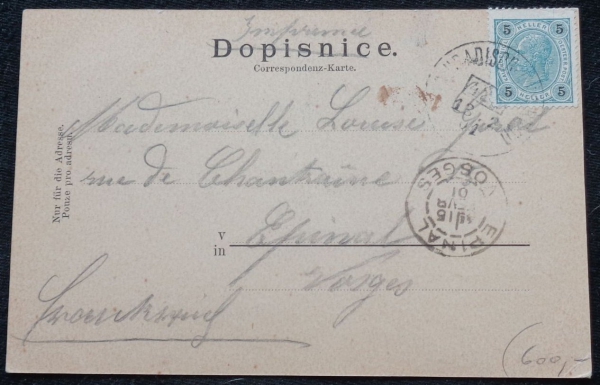 Imprimé
Dopisnice.
Correspondenz-Karte.
5 HELLER 5
5 HELLER 5
Nur für die Adresse.
Pouze pro adresu.
Mademoiselle Louise
rue de Chantraine
v
in
Epinal
Vosges
EPINAL
VOSGES
15
01
600,-